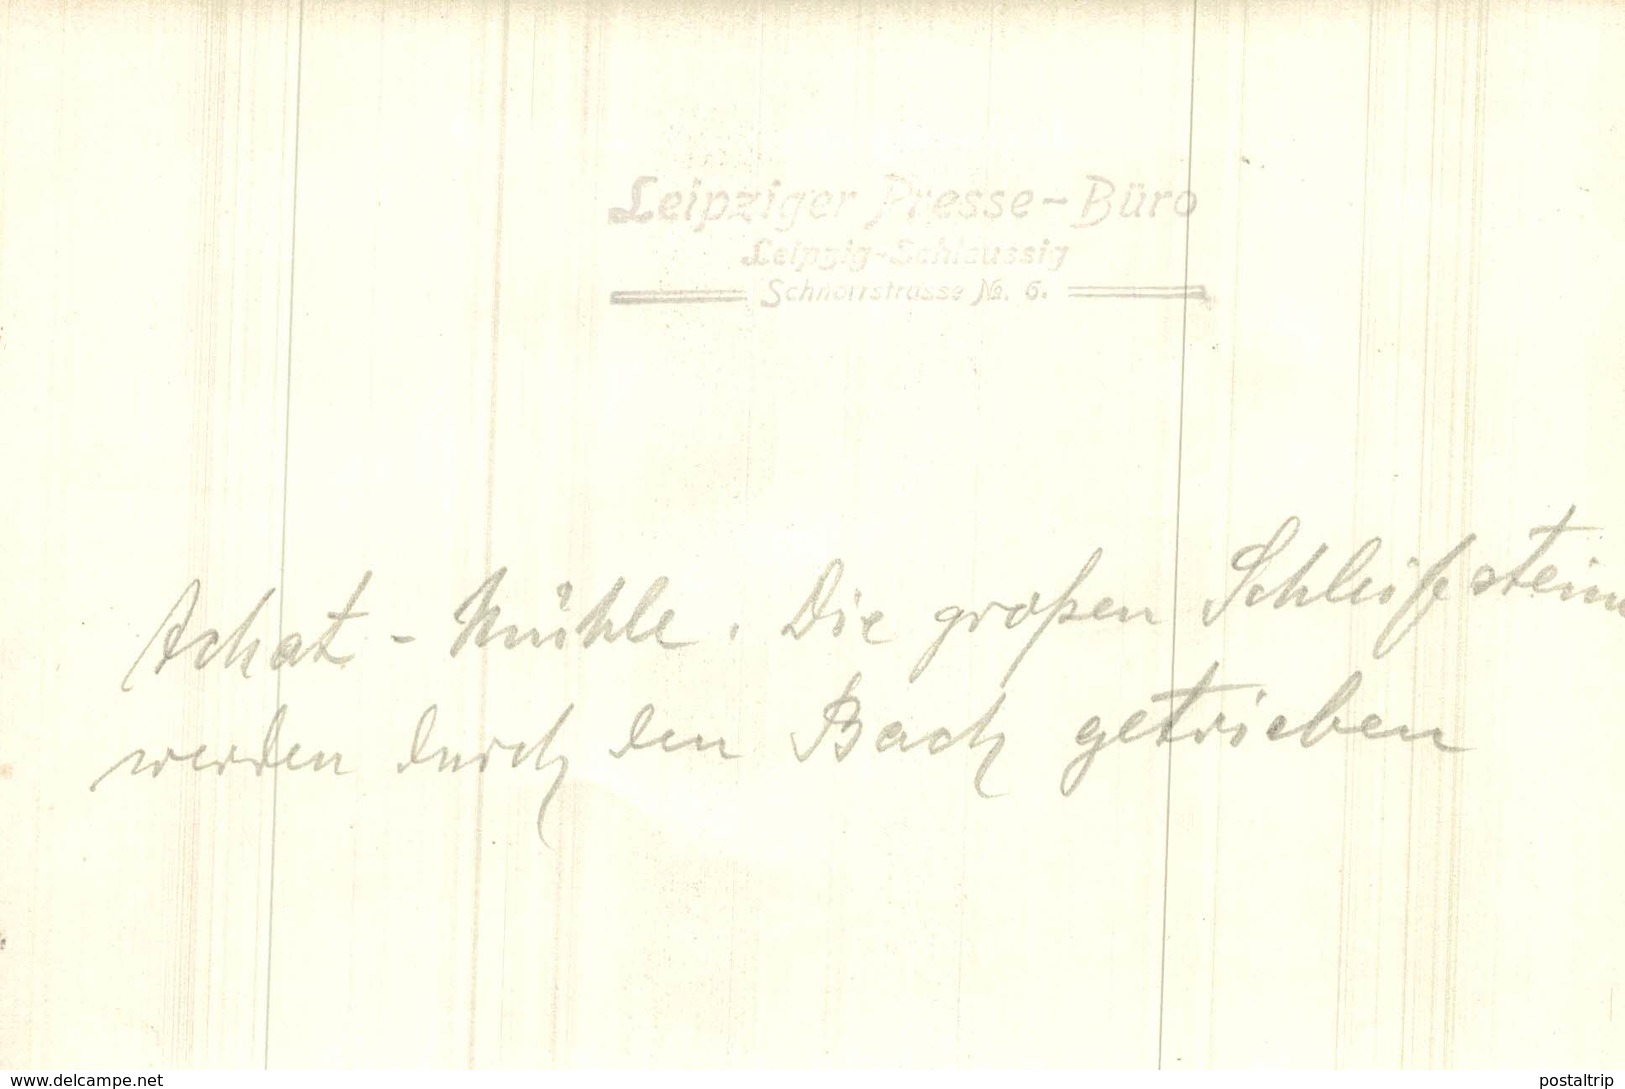 Leipziger Presse-Büro
Leipzig-Schleussig
Schnorrstrasse №. 6.
Achat - Mühle. Die großen Schleifsteine
werden durch den Bach getrieben
www.delcampe.net
postaltrip